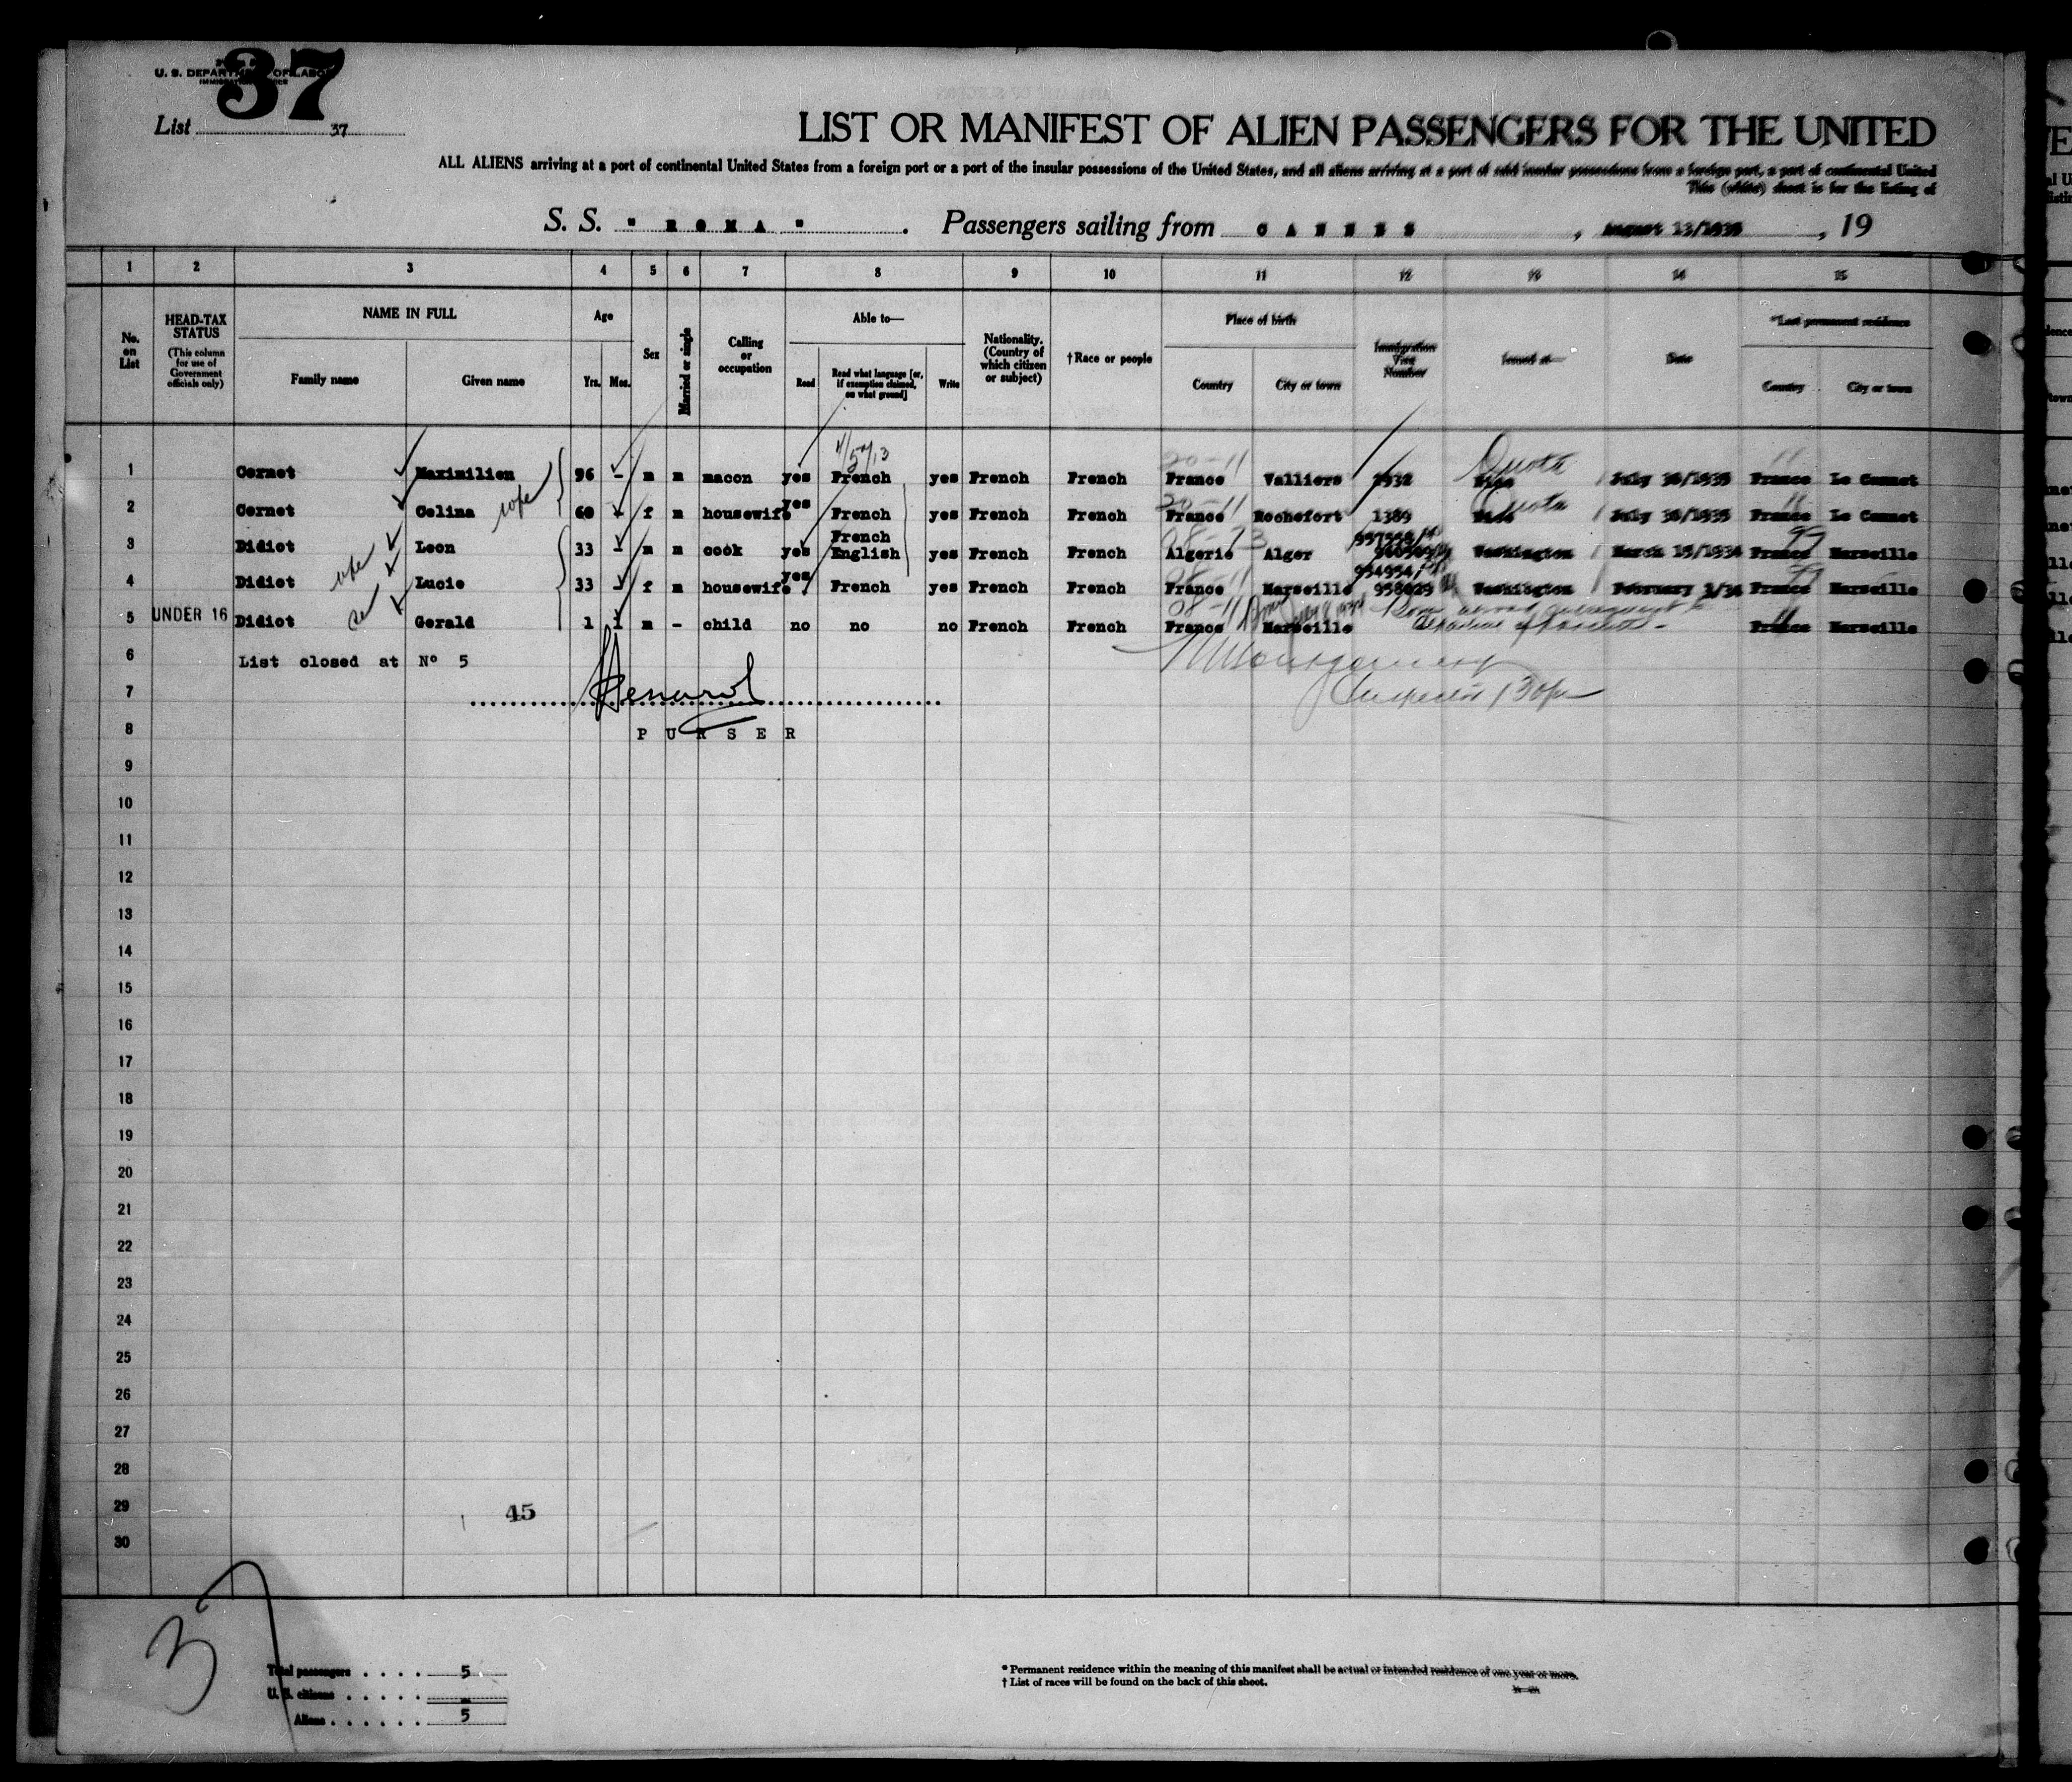 37
U. S. DEPARTMENT OF LABOR
List 37
LIST OR MANIFEST OF ALIEN PASSENGERS FOR THE UNITED
ALL ALIENS arriving at a port of continental United States from a foreign port or a port of the insular possessions of the United States, and all aliens arriving at a port of said insular possessions from a foreign port, a port of continental United
This (white) sheet is for the listing of
S. S. " ROMA " . Passengers sailing from CANNES , August 13/1935 , 19
1 2 3 4 5 6 7 8 9 10 11 12 13 14 15
No. on List
HEAD-TAX STATUS
(This column for use of Government officials only)
NAME IN FULL
Family name Given name
Age
Yrs. Mos.
Sex
Married or single
Calling or occupation
Able to—
Read Read what language [or, if exemption claimed, on what ground] Write
Nationality. (Country of which citizen or subject)
†Race or people
Place of birth
Country City or town
Immigration Visa Number
Issued at—
Date
*Last permanent residence
Country City or town
1 Cernet Maximilien 96 - m m macon yes French yes French French France Valliers 1932 Quota July 30/1935 France Le Cannet
2 Cernet Celina 60 - f m housewife yes French yes French French France Rochefort 1389 Quota July 30/1935 France Le Cannet
3 Didiot Leon 33 - m m cook yes French English yes French French Algerie Alger Washington March 15/1934 France Marseille
4 Didiot Lucie 33 - f m housewife yes French yes French French France Marseille 958029 Washington February 3/34 France Marseille
5 UNDER 16 Didiot Gerald 1 1 m - child no no no French French France Marseille Born abroad subsequent to departure of parents - France Marseille
6 List closed at Nº 5
7
8 PURSER
9
10
11
12
13
14
15
16
17
18
19
20
21
22
23
24
25
26
27
28
29
45
30
37
Total passengers . . . . 5
U. S. citizens . . . . . -
Aliens . . . . . . 5
* Permanent residence within the meaning of this manifest shall be actual or intended residence of one year or more.
† List of races will be found on the back of this sheet.